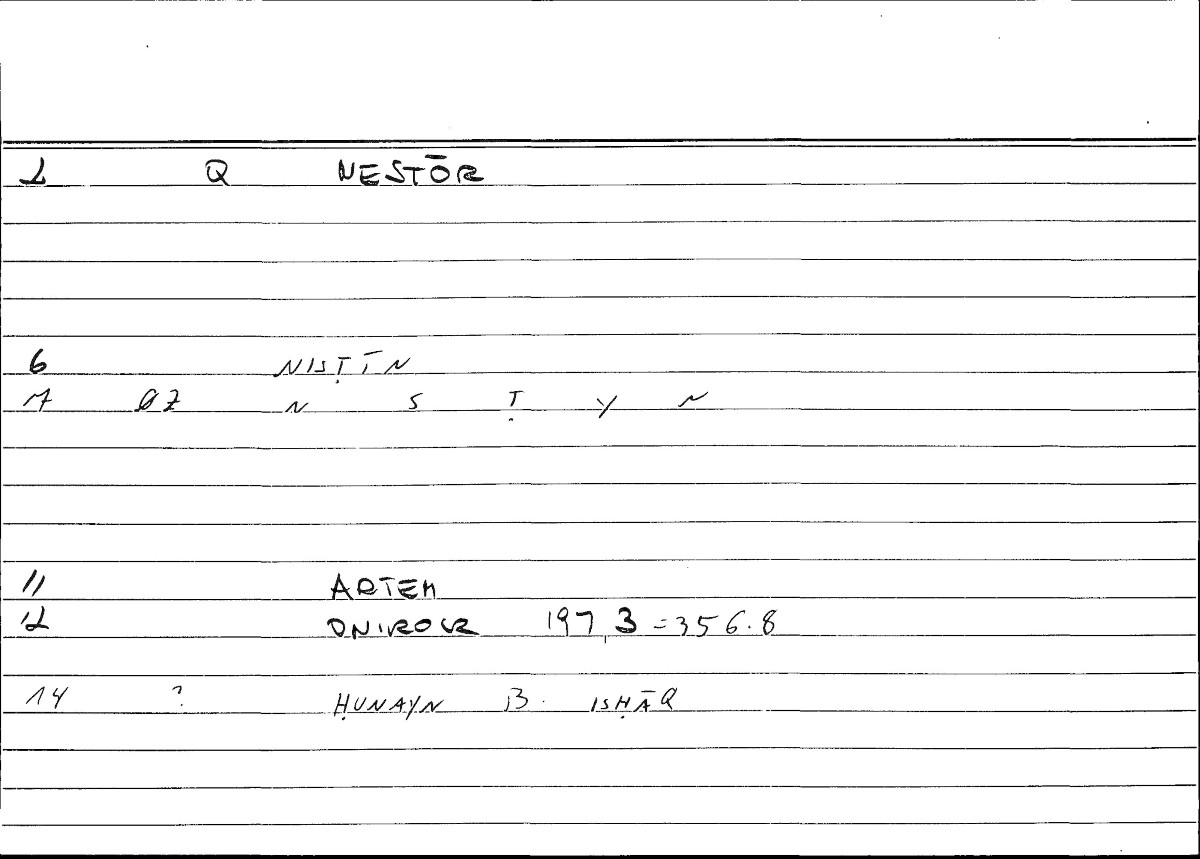 1 Q NESTŌR
6 NISṬĪN
7 QZ N S Ṭ Y N
11 ARTEM
12 ONIROCR 197,3=356.8
14 ? ḤUNAYN B. ISḤĀQ